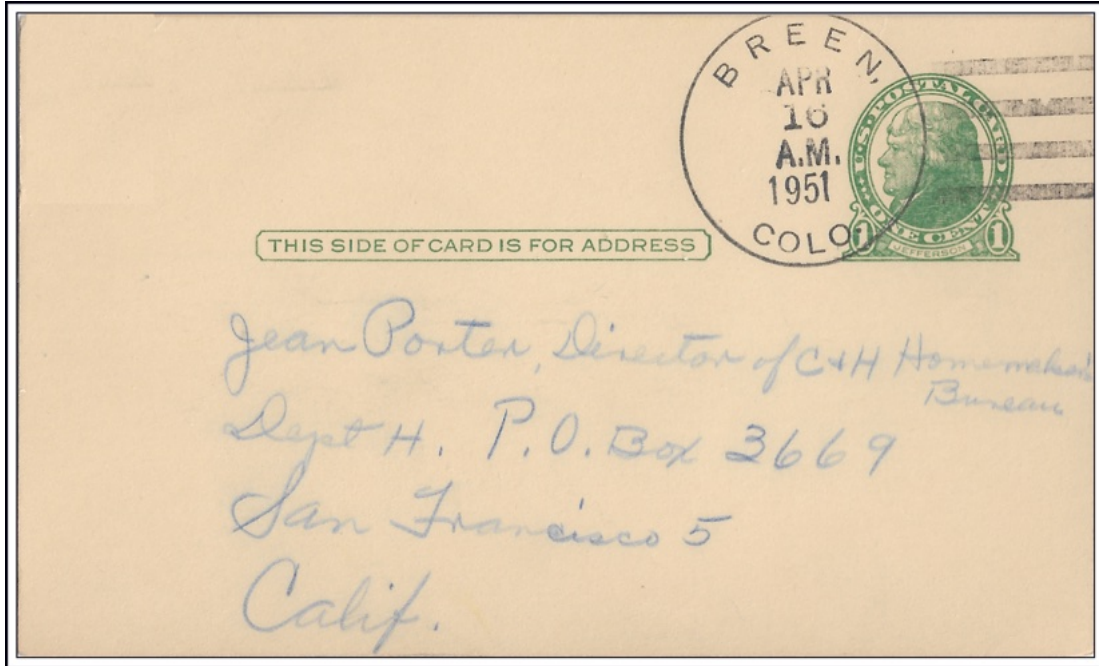 BREEN,
APR
16
A.M.
1951
COLO
U.S. POSTAL CARD
ONE CENT
1 1
JEFFERSON
THIS SIDE OF CARD IS FOR ADDRESS
Jean Porter, Director of C&H Homemakers
Bureau
Dept H. P.O. Box 3669
San Francisco 5
Calif.